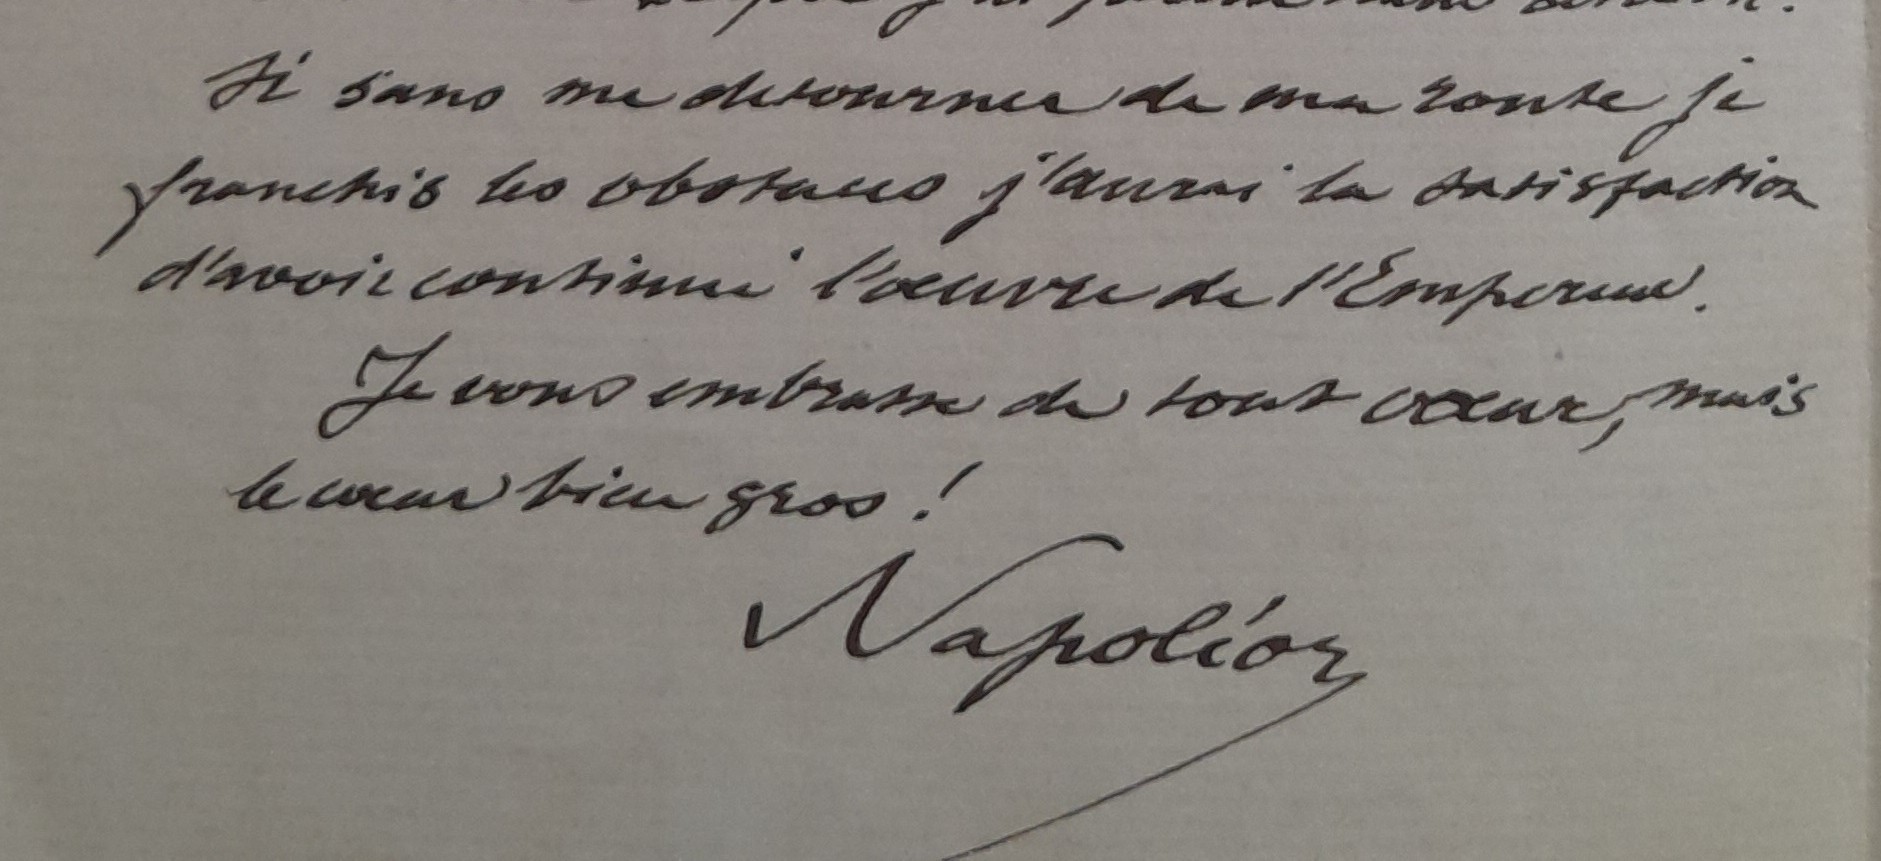 Si sans me detourner de ma route je
franchis les obstacles j'aurai la satisfaction
d'avoir continué l'œuvre de l'Empereur.
Je vous embrasse de tout cœur, mais
le cœur bien gros !
Napoléon